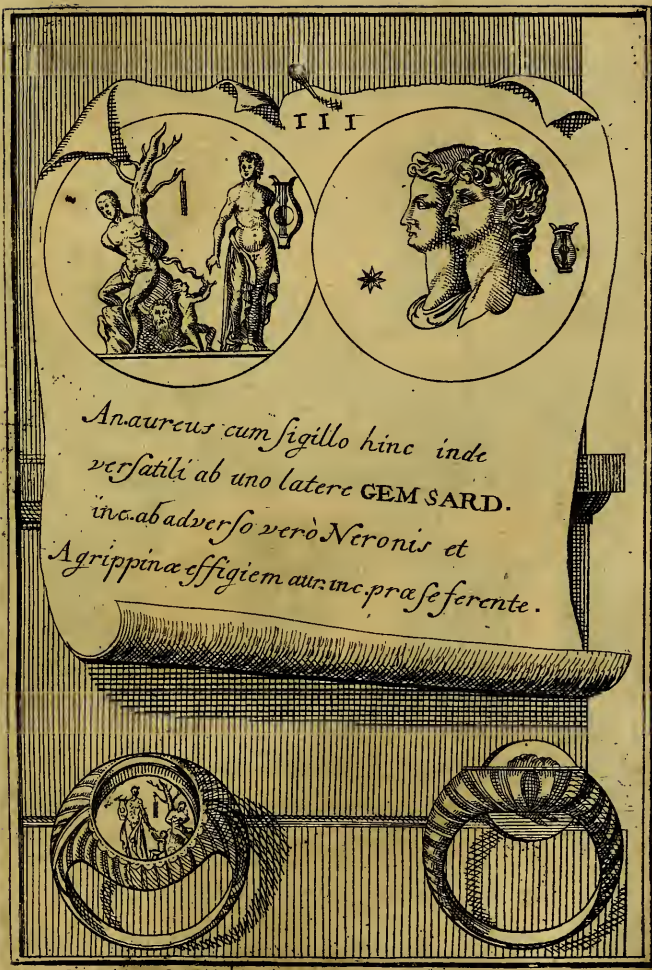 III
An.aureus cum ſigillo hinc inde
verſatili ab uno latere GEM SARD.
inc.ab adverſo verò Neronis et
Agrippinæ effigiem aur.inc.præ ſe ferente.